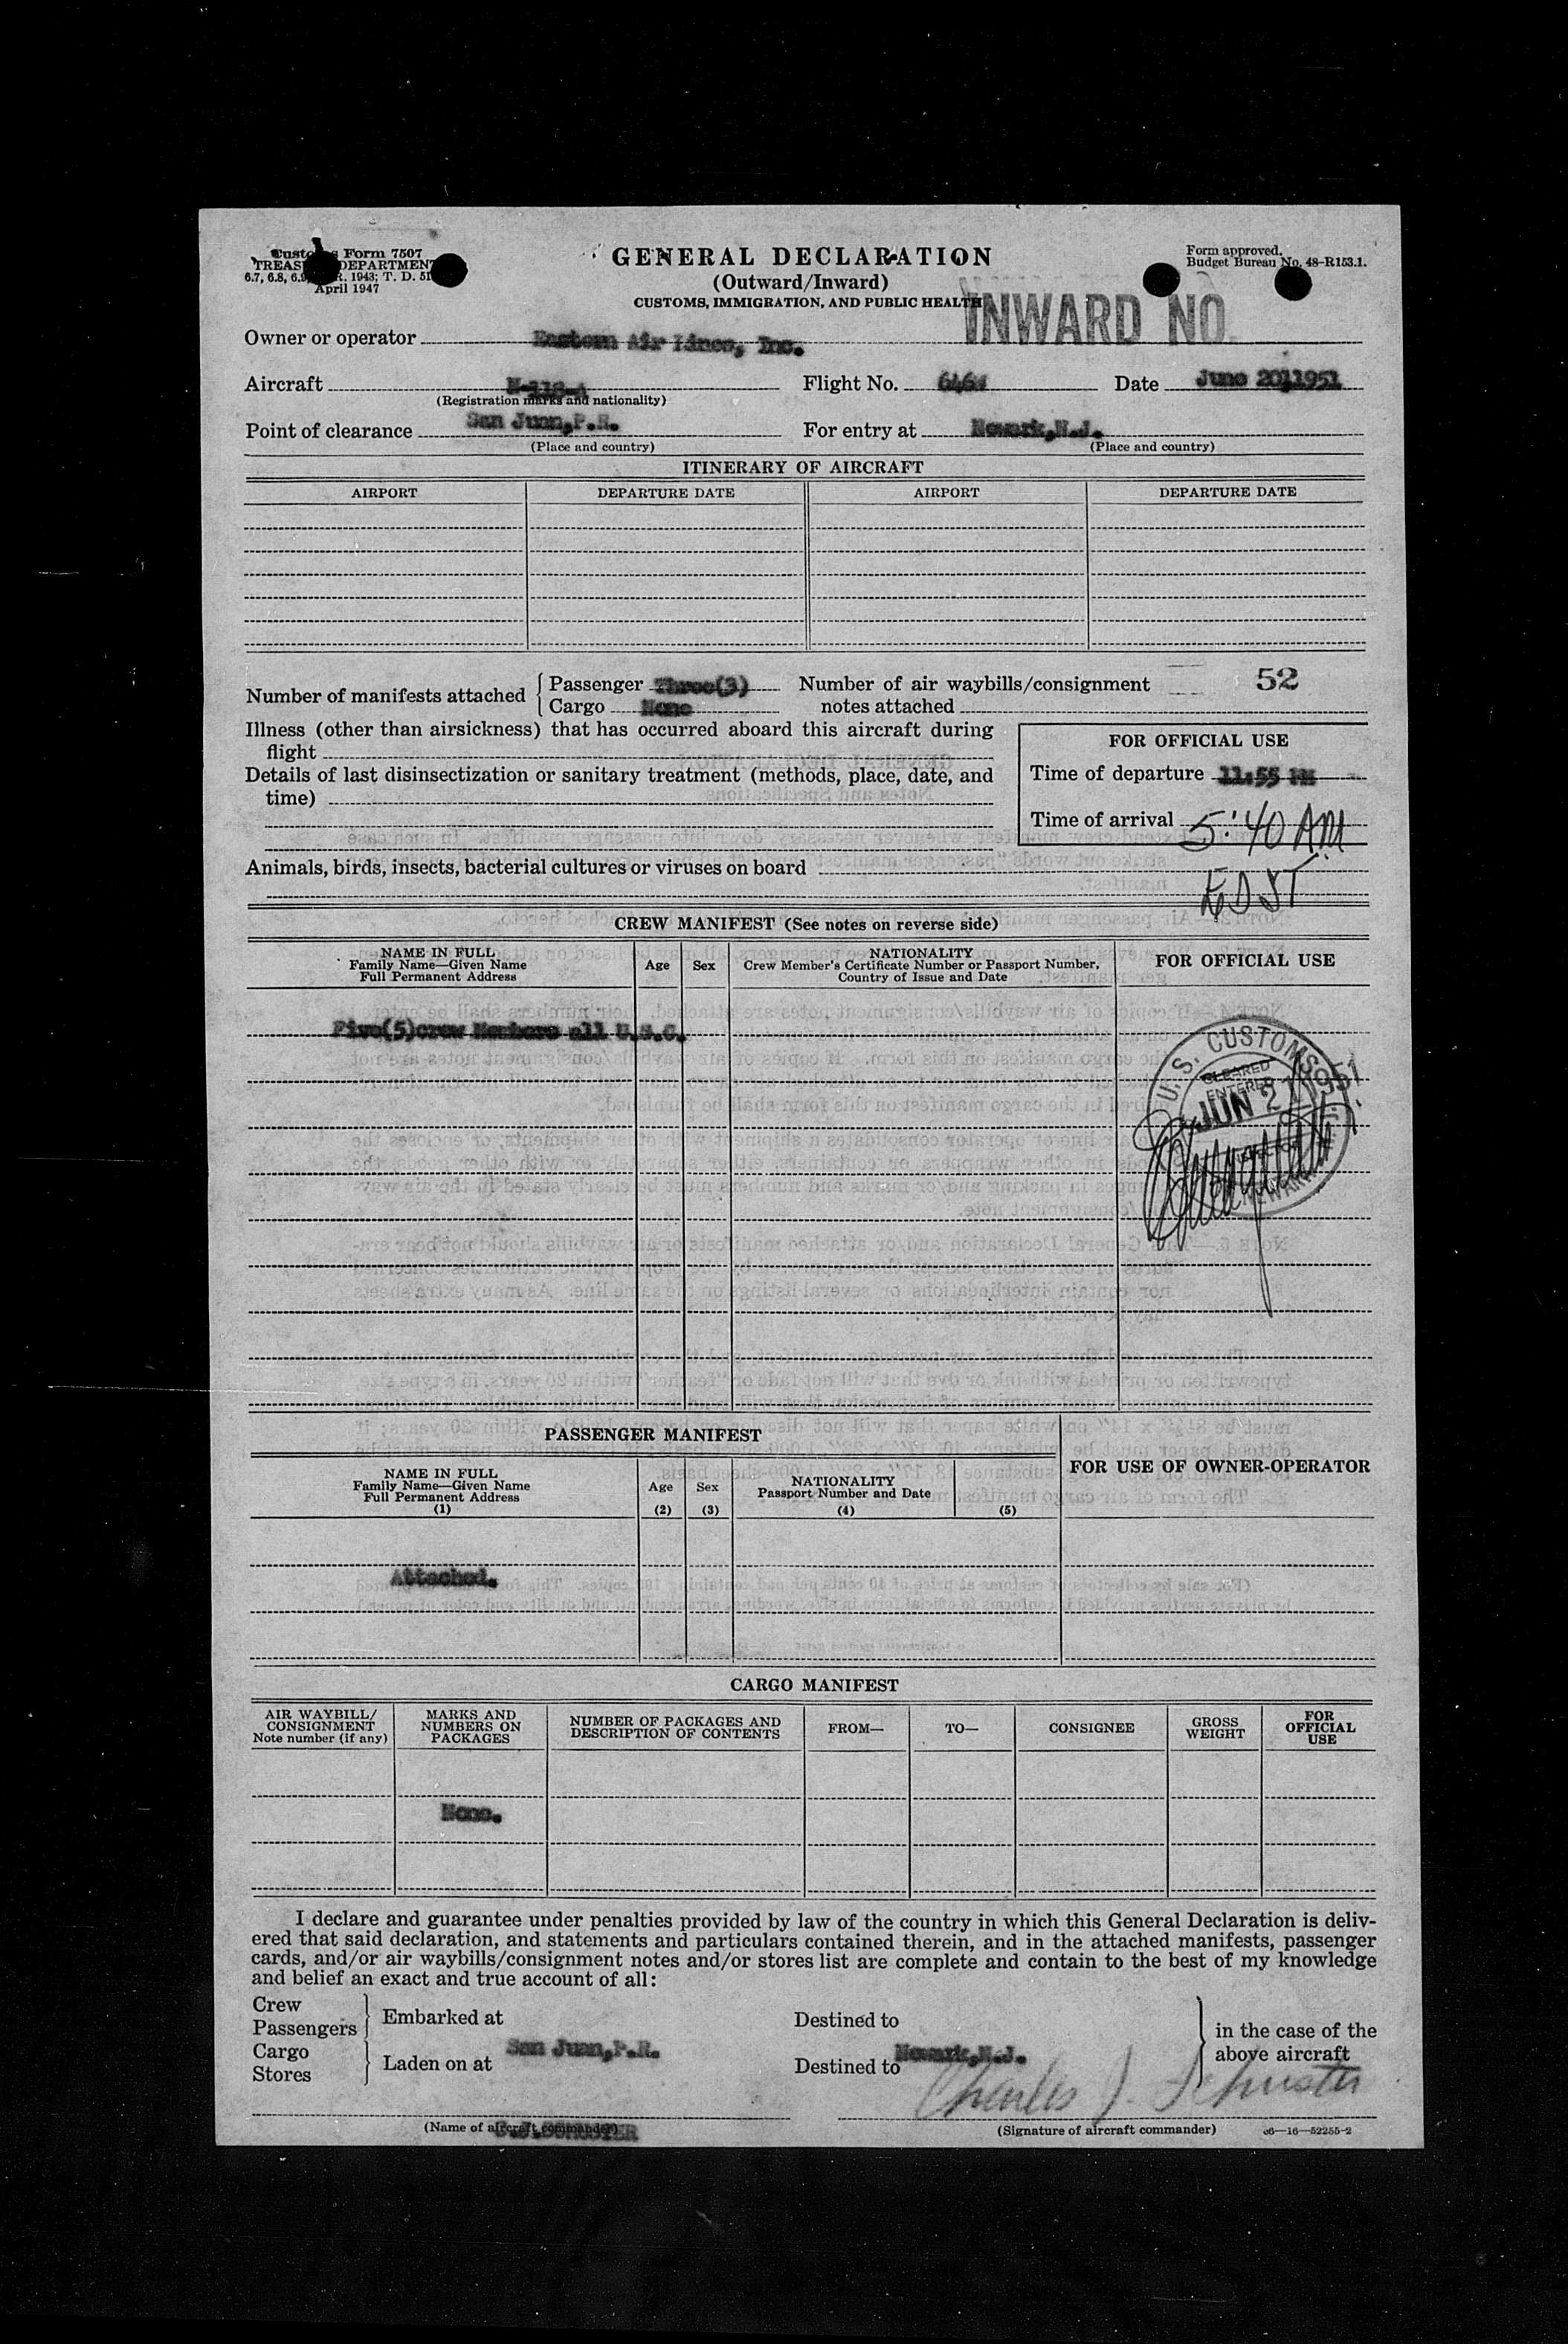 Customs Form 7507
TREASURY DEPARTMENT
6.7, 6.8, 6.9, R. 1943; T. D. 51
April 1947
GENERAL DECLARATION
(Outward/Inward)
CUSTOMS, IMMIGRATION, AND PUBLIC HEALTH
Form approved.
Budget Bureau No. 48-R153.1.
INWARD NO.
Owner or operator Eastern Air Lines, Inc.
Aircraft Flight No. Date June 20,1951
(Registration marks and nationality)
Point of clearance San Juan,P.R. For entry at Newark,N.J.
(Place and country) (Place and country)
ITINERARY OF AIRCRAFT
AIRPORT DEPARTURE DATE AIRPORT DEPARTURE DATE
Number of manifests attached Passenger Three(3) Number of air waybills/consignment 52
Cargo None notes attached
Illness (other than airsickness) that has occurred aboard this aircraft during
flight
FOR OFFICIAL USE
Details of last disinsectization or sanitary treatment (methods, place, date, and
time)
Time of departure 11:55 PM
Time of arrival 5:40 AM
EDST
Animals, birds, insects, bacterial cultures or viruses on board
CREW MANIFEST (See notes on reverse side)
NAME IN FULL
Family Name—Given Name
Full Permanent Address
Age Sex
NATIONALITY
Crew Member's Certificate Number or Passport Number,
Country of Issue and Date
FOR OFFICIAL USE
Five(5)crew Members all U.S.C.
U. S. CUSTOMS
CLEARED
ENTERED
JUN 21 1951
NEWARK
PASSENGER MANIFEST
FOR USE OF OWNER-OPERATOR
NAME IN FULL
Family Name—Given Name
Full Permanent Address
(1)
Age
(2)
Sex
(3)
NATIONALITY
Passport Number and Date
(4) (5)
Attached.
CARGO MANIFEST
AIR WAYBILL/
CONSIGNMENT
Note number (if any)
MARKS AND
NUMBERS ON
PACKAGES
NUMBER OF PACKAGES AND
DESCRIPTION OF CONTENTS
FROM— TO— CONSIGNEE
GROSS
WEIGHT
FOR
OFFICIAL
USE
None.
I declare and guarantee under penalties provided by law of the country in which this General Declaration is deliv-
ered that said declaration, and statements and particulars contained therein, and in the attached manifests, passenger
cards, and/or air waybills/consignment notes and/or stores list are complete and contain to the best of my knowledge
and belief an exact and true account of all:
Crew
Passengers Embarked at Destined to
Cargo
Stores Laden on at San Juan,P.R. Destined to Newark,N.J.
in the case of the
above aircraft
Charles J. Schuster
(Name of aircraft commander) C.J.SCHUSTER
(Signature of aircraft commander) c6—16—52255-2